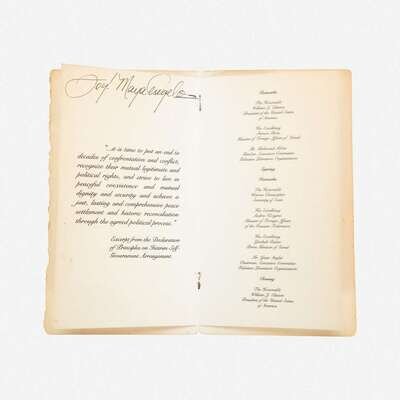 Joy! Maya Angelou
"...it is time to put an end to
decades of confrontation and conflict,
recognize their mutual legitimate and
political rights, and strive to live in
peaceful coexistence and mutual
dignity and security and achieve a
just, lasting and comprehensive peace
settlement and historic reconciliation
through the agreed political process."
Excerpt from the Declaration
of Principles on Interim Self-
Government Arrangements
Remarks
The Honorable
William J. Clinton
President of the United States
of America
His Excellency
Shimon Peres
Minister of Foreign Affairs of Israel
Mr. Mahmoud Abbas
Member, Executive Committee
Palestine Liberation Organization
Signing
Remarks
The Honorable
Warren Christopher
Secretary of State
His Excellency
Andrei Kozyrev
Minister of Foreign Affairs
of the Russian Federation
His Excellency
Yitzhak Rabin
Prime Minister of Israel
Mr. Yasir Arafat
Chairman, Executive Committee
Palestine Liberation Organization
Closing
The Honorable
William J. Clinton
President of the United States
of America